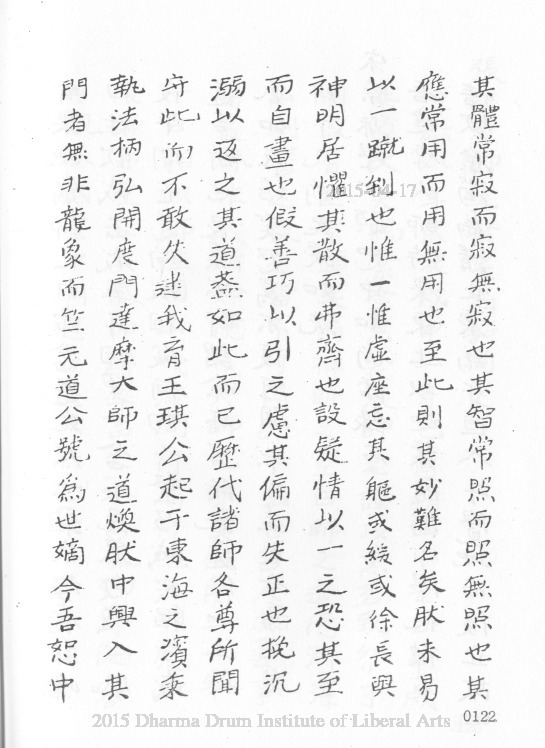 其體常寂而寂無寂也其智常照而照無照也其
應常用而用無用也至此則其妙難名矣肰未易
以一蹴到也惟一惟虛座忘其軀或緩或徐長與
神明居懼其散而弗齊也設疑情以一之恐其至
而自畫也假善巧以引之慮其偏而失正也拯沉
溺以返之其道葢如此而已歷代諸師各尊所聞
守此而不敢失逮我育王琪公起于東海之濱秉
執法柄弘開度門達摩大師之道煥肰中興入其
門者無非龍象而竺元道公號為世嫡今吾恕中
0122
2015-04-17
2015 Dharma Drum Institute of Liberal Arts